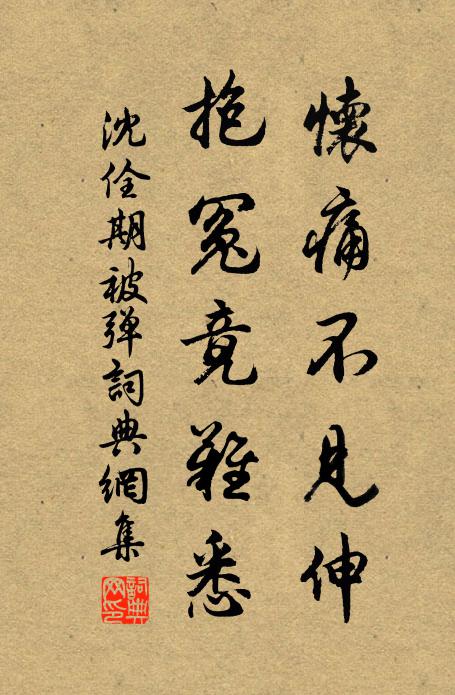 懷痛不見伸
抱冤竟難悉
沈佺期被弹詞典網集
詞典网印